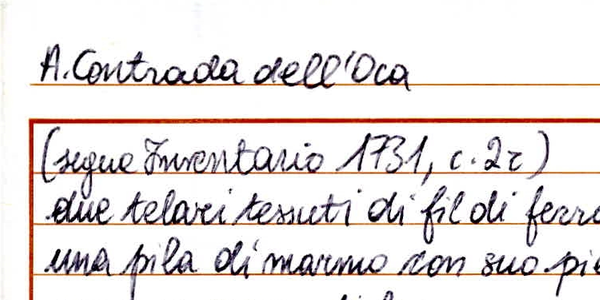 A. Contrada dell'Oca
(segue Inventario 1731, c. 2r)
due telari tessuti di fil di ferro
una pila di marmo con suo pie